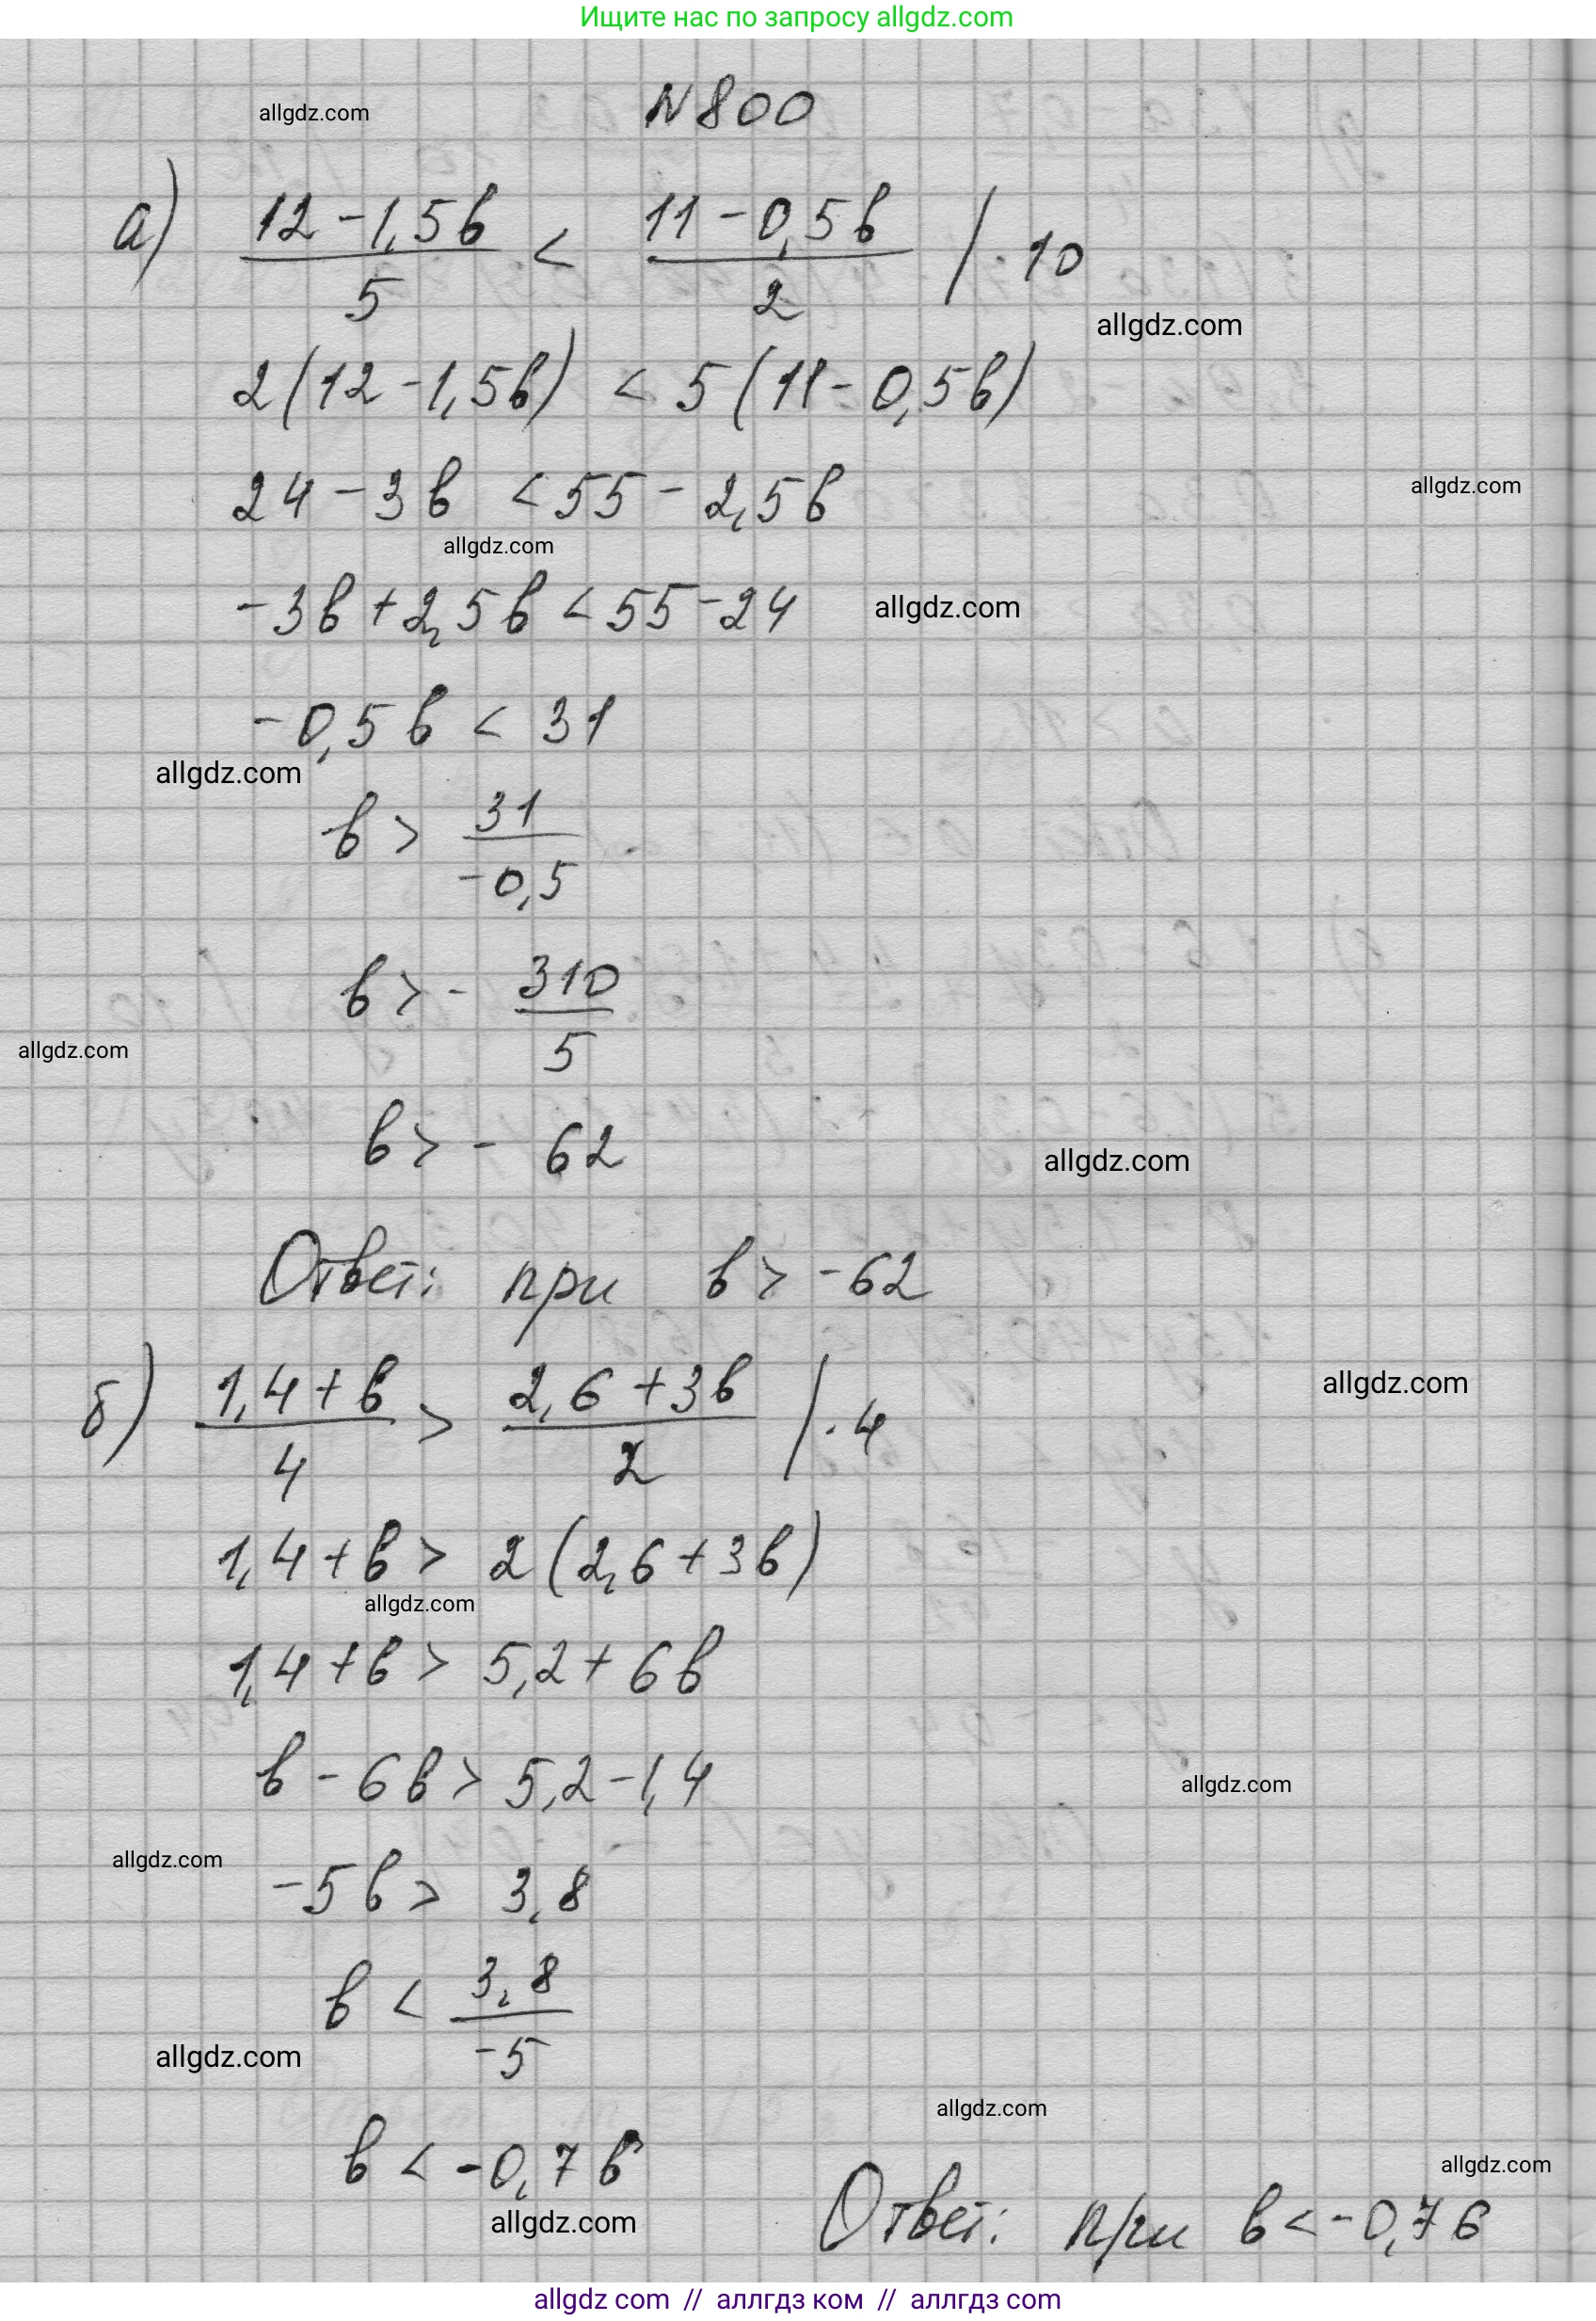 Ищите нас по запросу allgdz.com
allgdz.com
N 800
а) (12 - 1,5b)/5 < (11 - 0,5b)/2 / · 10
allgdz.com
2(12 - 1,5b) < 5(11 - 0,5b)
24 - 3b < 55 - 2,5b
allgdz.com
allgdz.com
-3b + 2,5b < 55 - 24
allgdz.com
-0,5b < 31
allgdz.com
b > 31/(-0,5)
b > - 310/5
allgdz.com
b > - 62
allgdz.com
Ответ: при b > -62
б) (1,4 + b)/4 > (2,6 + 3b)/2 / · 4
allgdz.com
1,4 + b > 2(2,6 + 3b)
allgdz.com
1,4 + b > 5,2 + 6b
b - 6b > 5,2 - 1,4
allgdz.com
allgdz.com
-5b > 3,8
b < 3,8/(-5)
allgdz.com
allgdz.com
b < -0,76
allgdz.com
allgdz.com
Ответ: при b < -0,76
allgdz.com // аллгдз ком // аллгдз.com